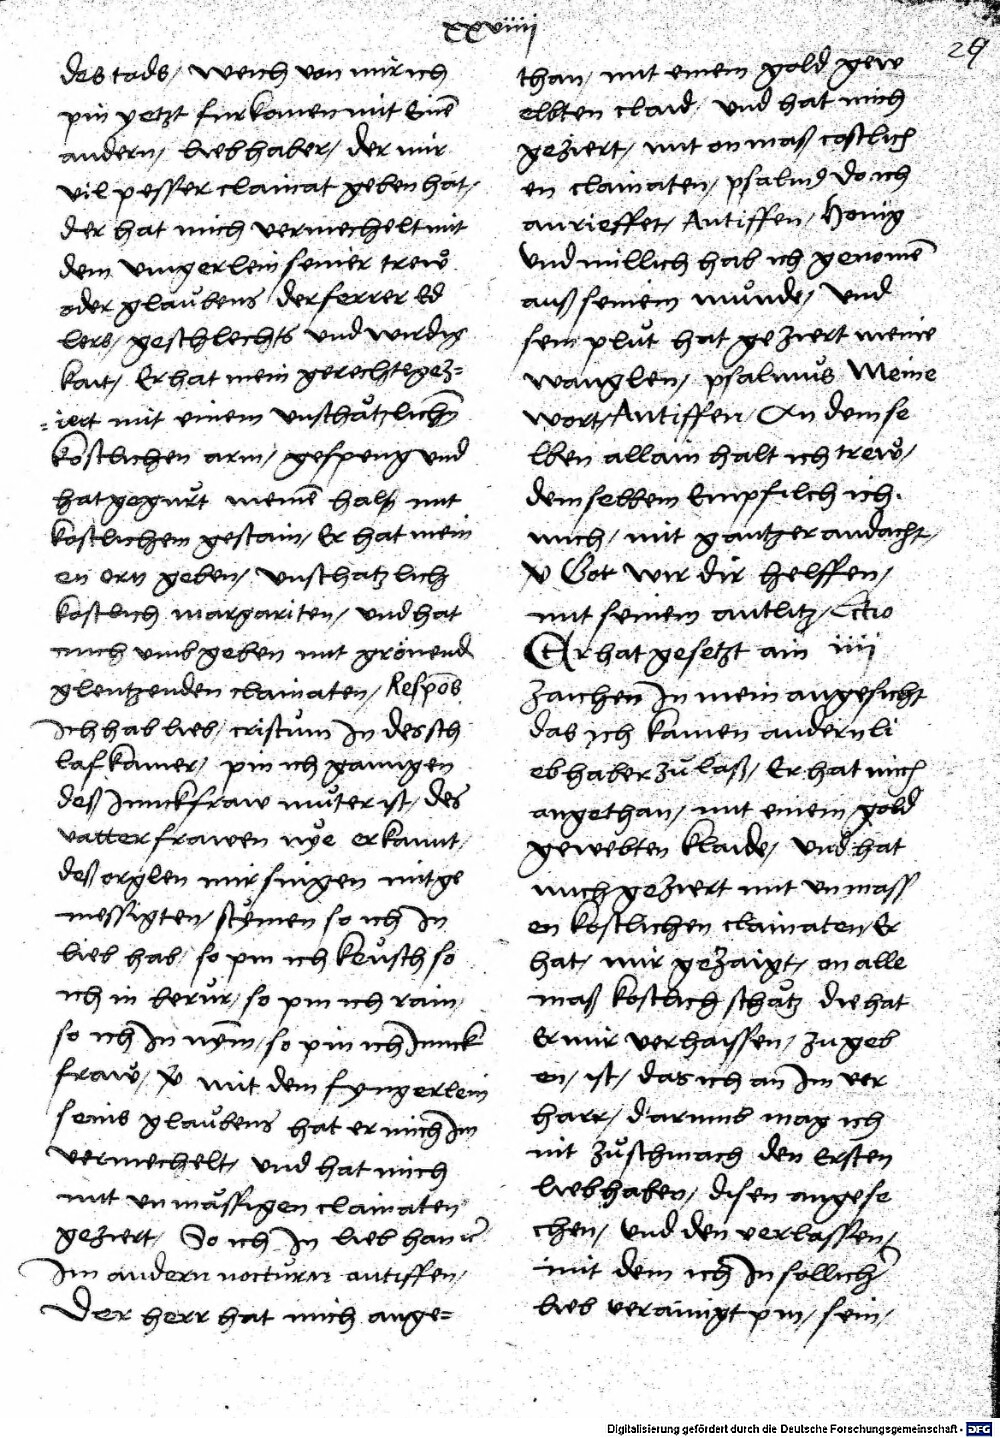 xxviiij
29
des tods / weich von mir ich
pin yetzt furkomen mit Einē
andern / liebhaber / der mir
vil pesser clainat geben hat /
der hat mich vermehelt mit
dem vingerlein seiner trew
oder glaubens der ferrer Ed
lers / geschlechts und wirdig
kait / Er hat mein gerechte gez=
=iert mit einem unschätzlichen
kostlichen arm / gespeng und
hat gegurt meinē hals mit
kostlichem gestain / Er hat mein
en orn geben / unschatzlich
kostlich margariten / und hat
mich umb geben mit grönend
glentzenden clainaten / Respōs
Ich hab lieb / cristum In des sch
lafkamer / pin ich gangen
deß Junckfraw muter ist / des
vatter frawen nye erkannt /
deß orglen mir singen mit ge
messigten / stymen so ich In
lieb hab / so pin ich keusch so
ich in berur / so pin ich rain /
so ich In nym / so pin ich Junck
fraw / V mit dem fyngerlein
seins glaubens hat er mich Im
vermechelt / und hat mich
mit unmässigen clainaten
geziert / So ich In lieb han
Im andern nocturn antiffen /
Der herr hat mich ange=
than / mit einem gold gew
elbten claid / und hat mich
geziert / mit on maß costlich
en clainaten / psalmꝰ do ich
anrieffet / Antiffen / Honig
Und millich hab ich genomē
auß seinem munde / und
sein plut hat geziert meine
wanglen / psalmus Meine
wort / Antiffen / An dem se
lben allain halt ich trew /
demselbem Empfilch ich.
mich / mit gantzer andacht /
V Got wir dir helffen /
mit seinem antlitz / Lctio
Er hat gesetzt ain iiij
Zaichen In mein angesicht
das ich kainen andern li
ebhaber zu laß / Er hat mich
angethan / mit einem gold
gewebten klaide / und hat
mich geziert mit unmass
en kostlichen clainaten / Er
hat / mir gezaigt / on alle
maß kostlich schätz die hat
Er mir verhaissen / zu geb
en / ist / das ich an Im ver
harr / darumb mag ich
nit zuschmach den Ersten
liebhaben / disen angese
chen / und den verlassen /
mit dem ich In sollich
lieb verainigt pin / sein /
Digitalisierung gefördert durch die Deutsche Forschungsgemeinschaft - DFG